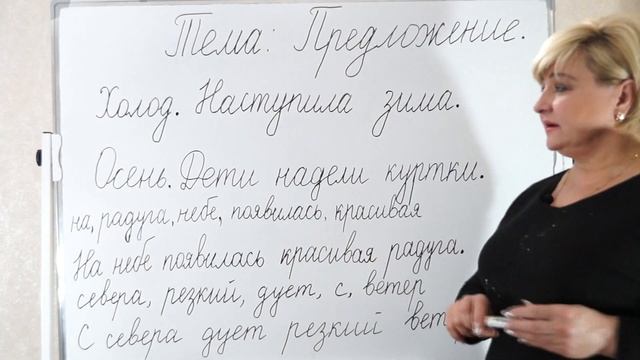 Тема: Предложение.
Холод. Наступила зима.
Осень. Дети надели куртки.
на, радуга, небе, появилась, красивая
На небе появилась красивая радуга.
севера, резкий, дует, с, ветер
С севера дует резкий